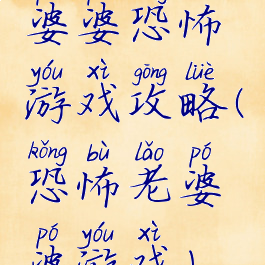 婆婆恐怖
yóu xì gōng lüè
游戏攻略(
kǒng bù lǎo pó
恐怖老婆
pó yóu xì
婆游戏)